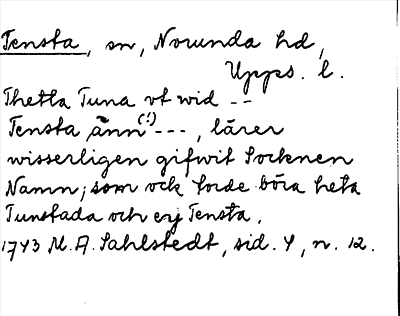 Tensta, sn, Norunda hd,
Upps. l.
Thetta Tuna vt wid --
Tensta ånn(!) ---, lärer
wisserligen gifwit Socknen
Namn; som ock torde böra heta
Tunstada och ey Tensta.
1743 M. A. Sahlstedt, sid. 4, n. 12.